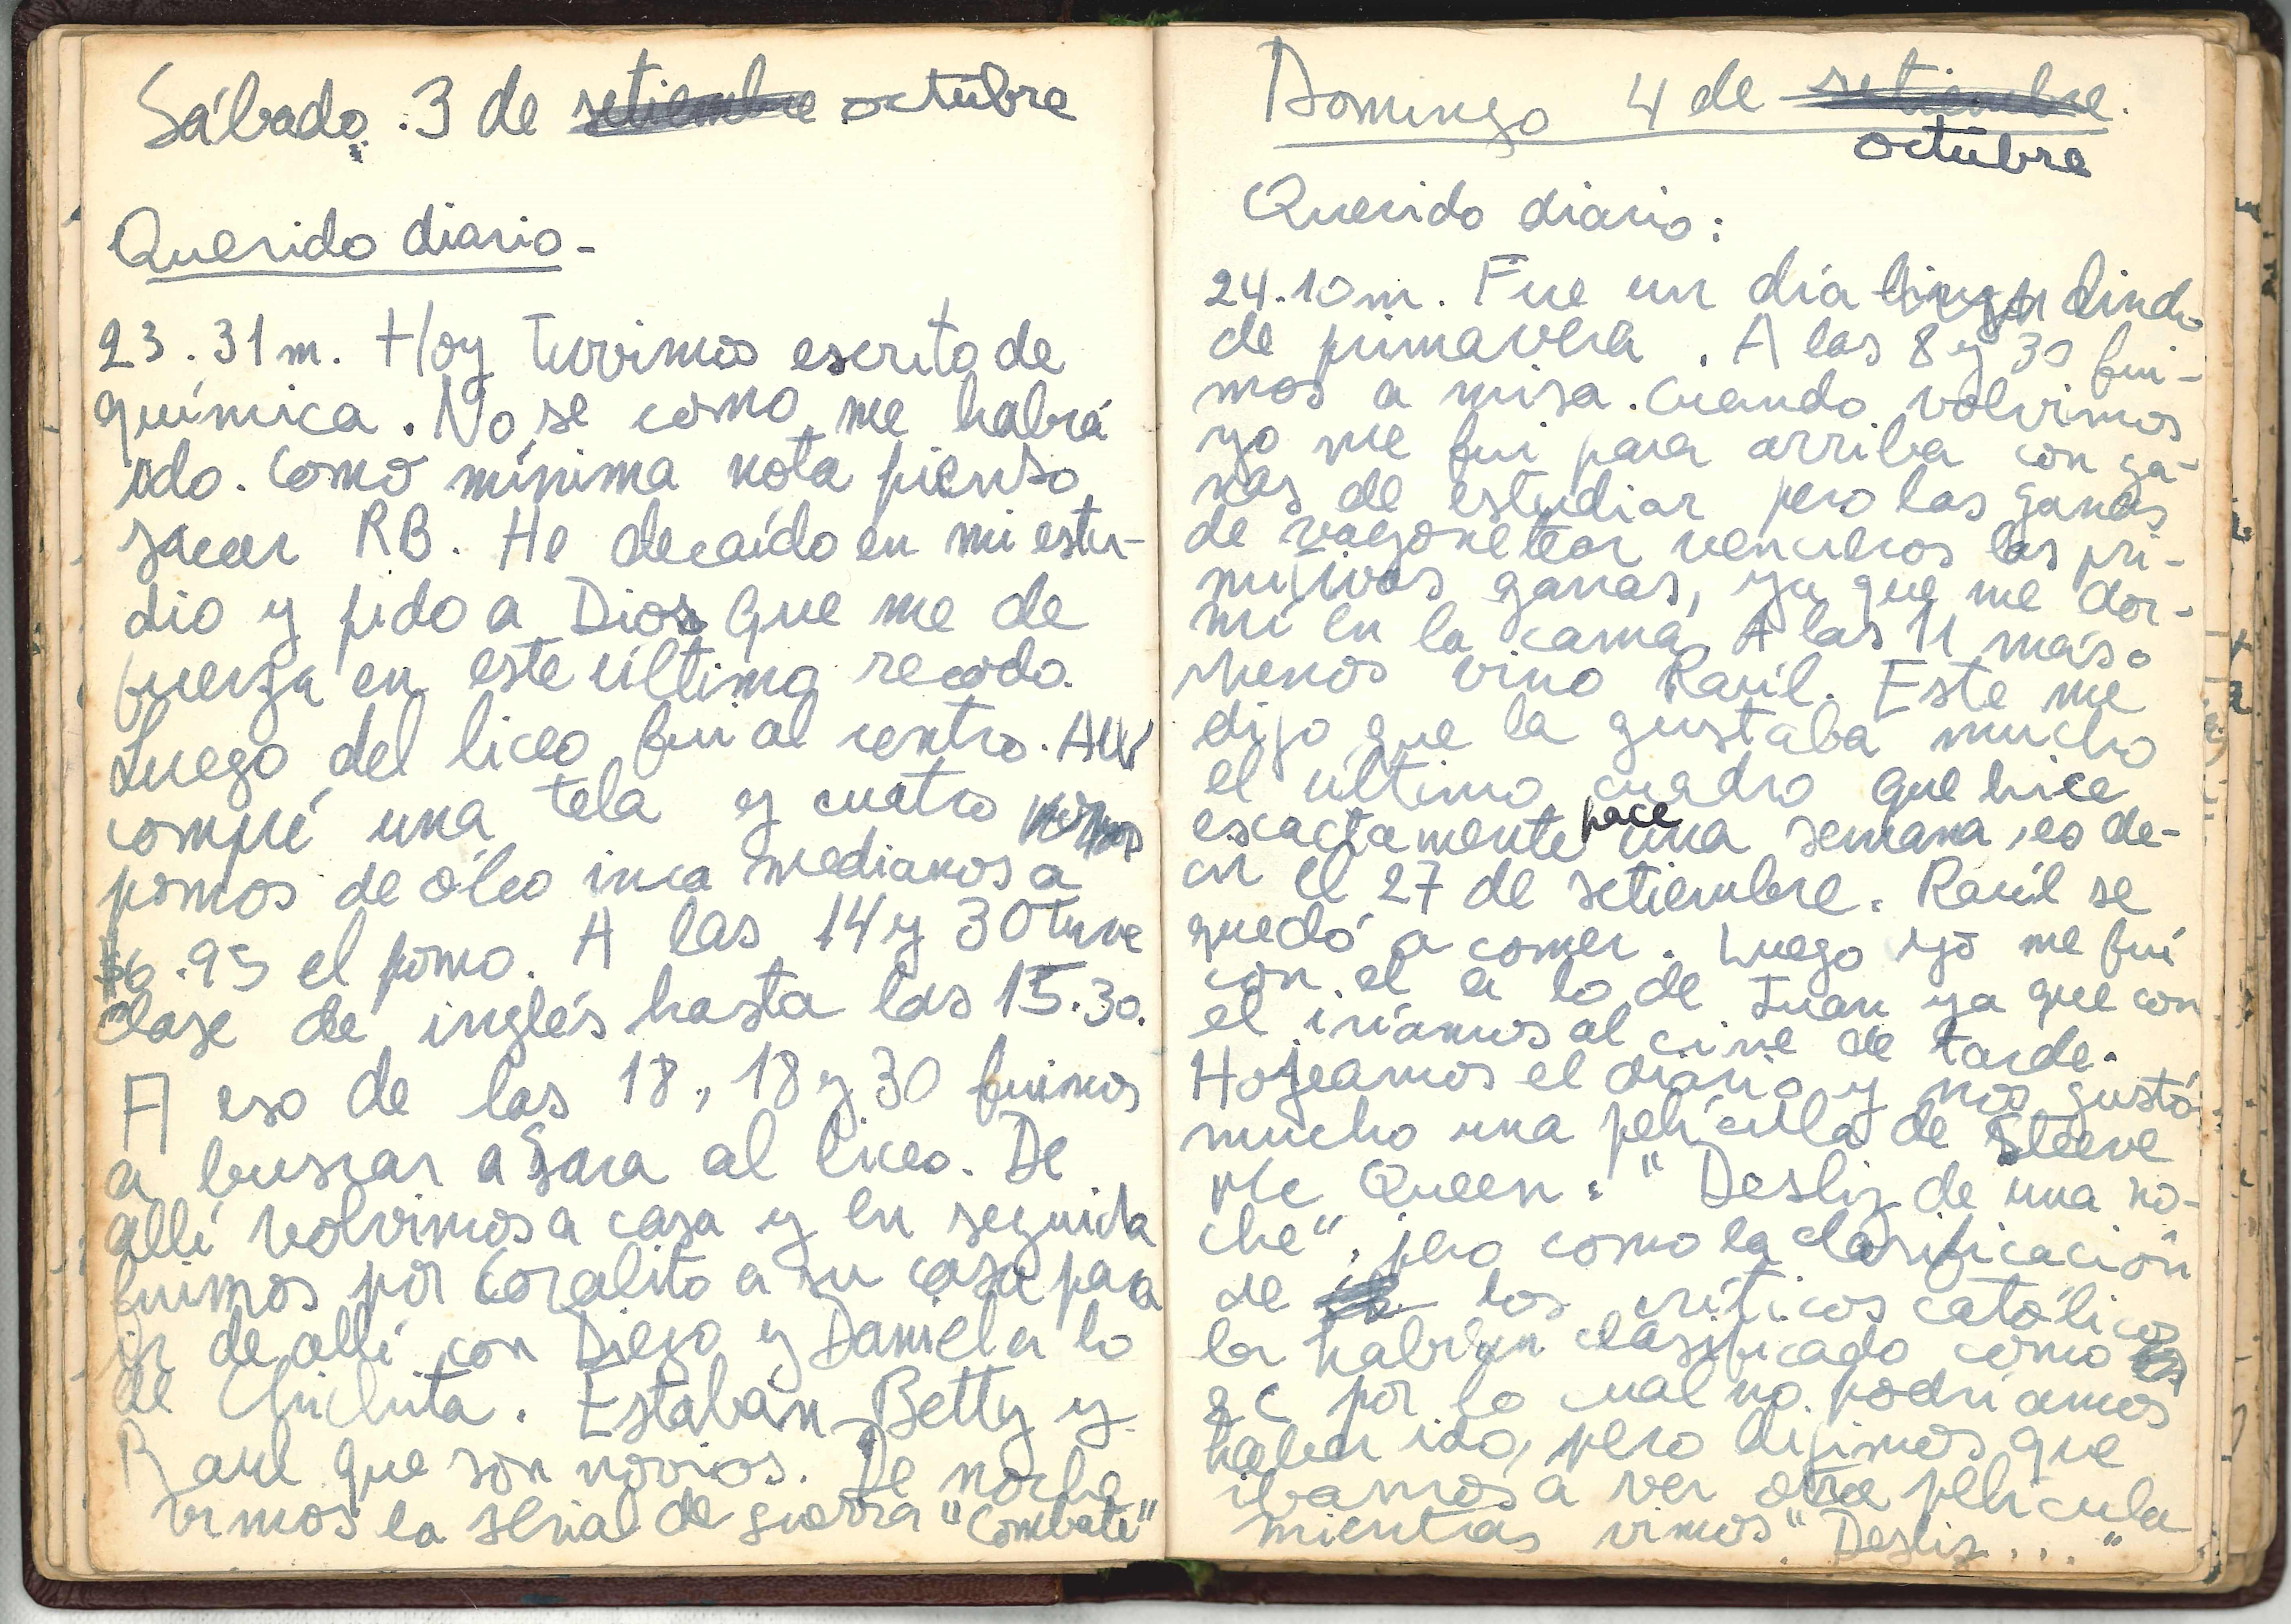 Sábado. 3 de setiembre octubre
Querido diario-
23.31m. Hoy tuvimos escrito de
química. No se como me habrá
ido. Como mínima nota pienso
sacar RB. He decaído en mi estu-
dio y pido a Dios que me de
fuerza en este último recodo.
Luego del liceo fui al centro. Allí
compré una tela y cuatro
pomos de óleo inca medianos a
$6.95 el pomo. A las 14 y 30 tuve
clase de inglés hasta las 15.30.
A eso de las 18, 18 y 30 fuimos
a buscar a Sara al liceo. De
allí volvimos a casa y en seguida
fuimos por Coralito a su casa para
ir de allí con Diego y Daniel a lo
de Chichita. Estaban Betty y
Raul que son novios. De noche
vimos la serial de guerra "Combate"
Domingo 4 de setiembre.
octubre
Querido diario:
24.10m. Fue un día lindo
de primavera. A las 8 y 30 fui-
mos a misa. Cuando volvimos
yo me fui para arriba con ga-
nas de estudiar pero las ganas
de vagonetear vencieros las pri-
mitivas ganas, ya que me dor-
mí en la cama. A las 11 más o
menos vino Raúl. Este me
dijo que la gustaba mucho
el último cuadro que hice
escactamente hace una semana, es de-
cir el 27 de setiembre. Raúl se
quedó a comer. Luego yo me fui
con el a lo de Juan ya que con
el iríamos al cine de tarde.
Hojeamos el diario y nos gustó
mucho una película de Steeve
Mc Queen: "Desliz de una no-
che", pero como la clasificación
de los críticos católicos
la habían clasificado como
C por lo cual no podríamos
haber ido, pero dijimos que
ibamos a ver otra película
mientras vimos "Desliz..."